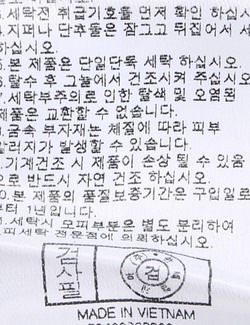 .세탁전 취급기호를 먼저 확인 하십시
.지퍼나 단추등은 잠그고 뒤집어서 세
하십시오.
5.본 제품은 단일단독 세탁 하십시오.
6.탈수 후 그늘에서 건조시켜 주십시오
7.세탁부주의로 인한 탈색 및 오염된
제품은 교환할 수 없습니다.
8.금속 부자재는 체질에 따라 피부
알러지가 발생할 수 있습니다.
.기계건조 시 제품이 손상 될 수 있음
으로 반드시 자연 건조 하십시오.
0.본 제품의 품질보증기간은 구입일로
부터 1년입니다.
.세탁시 모피부분은 별도 분리하여
피세탁 전문점에 의뢰하십시오.
검사필
검
MADE IN VIETNAM